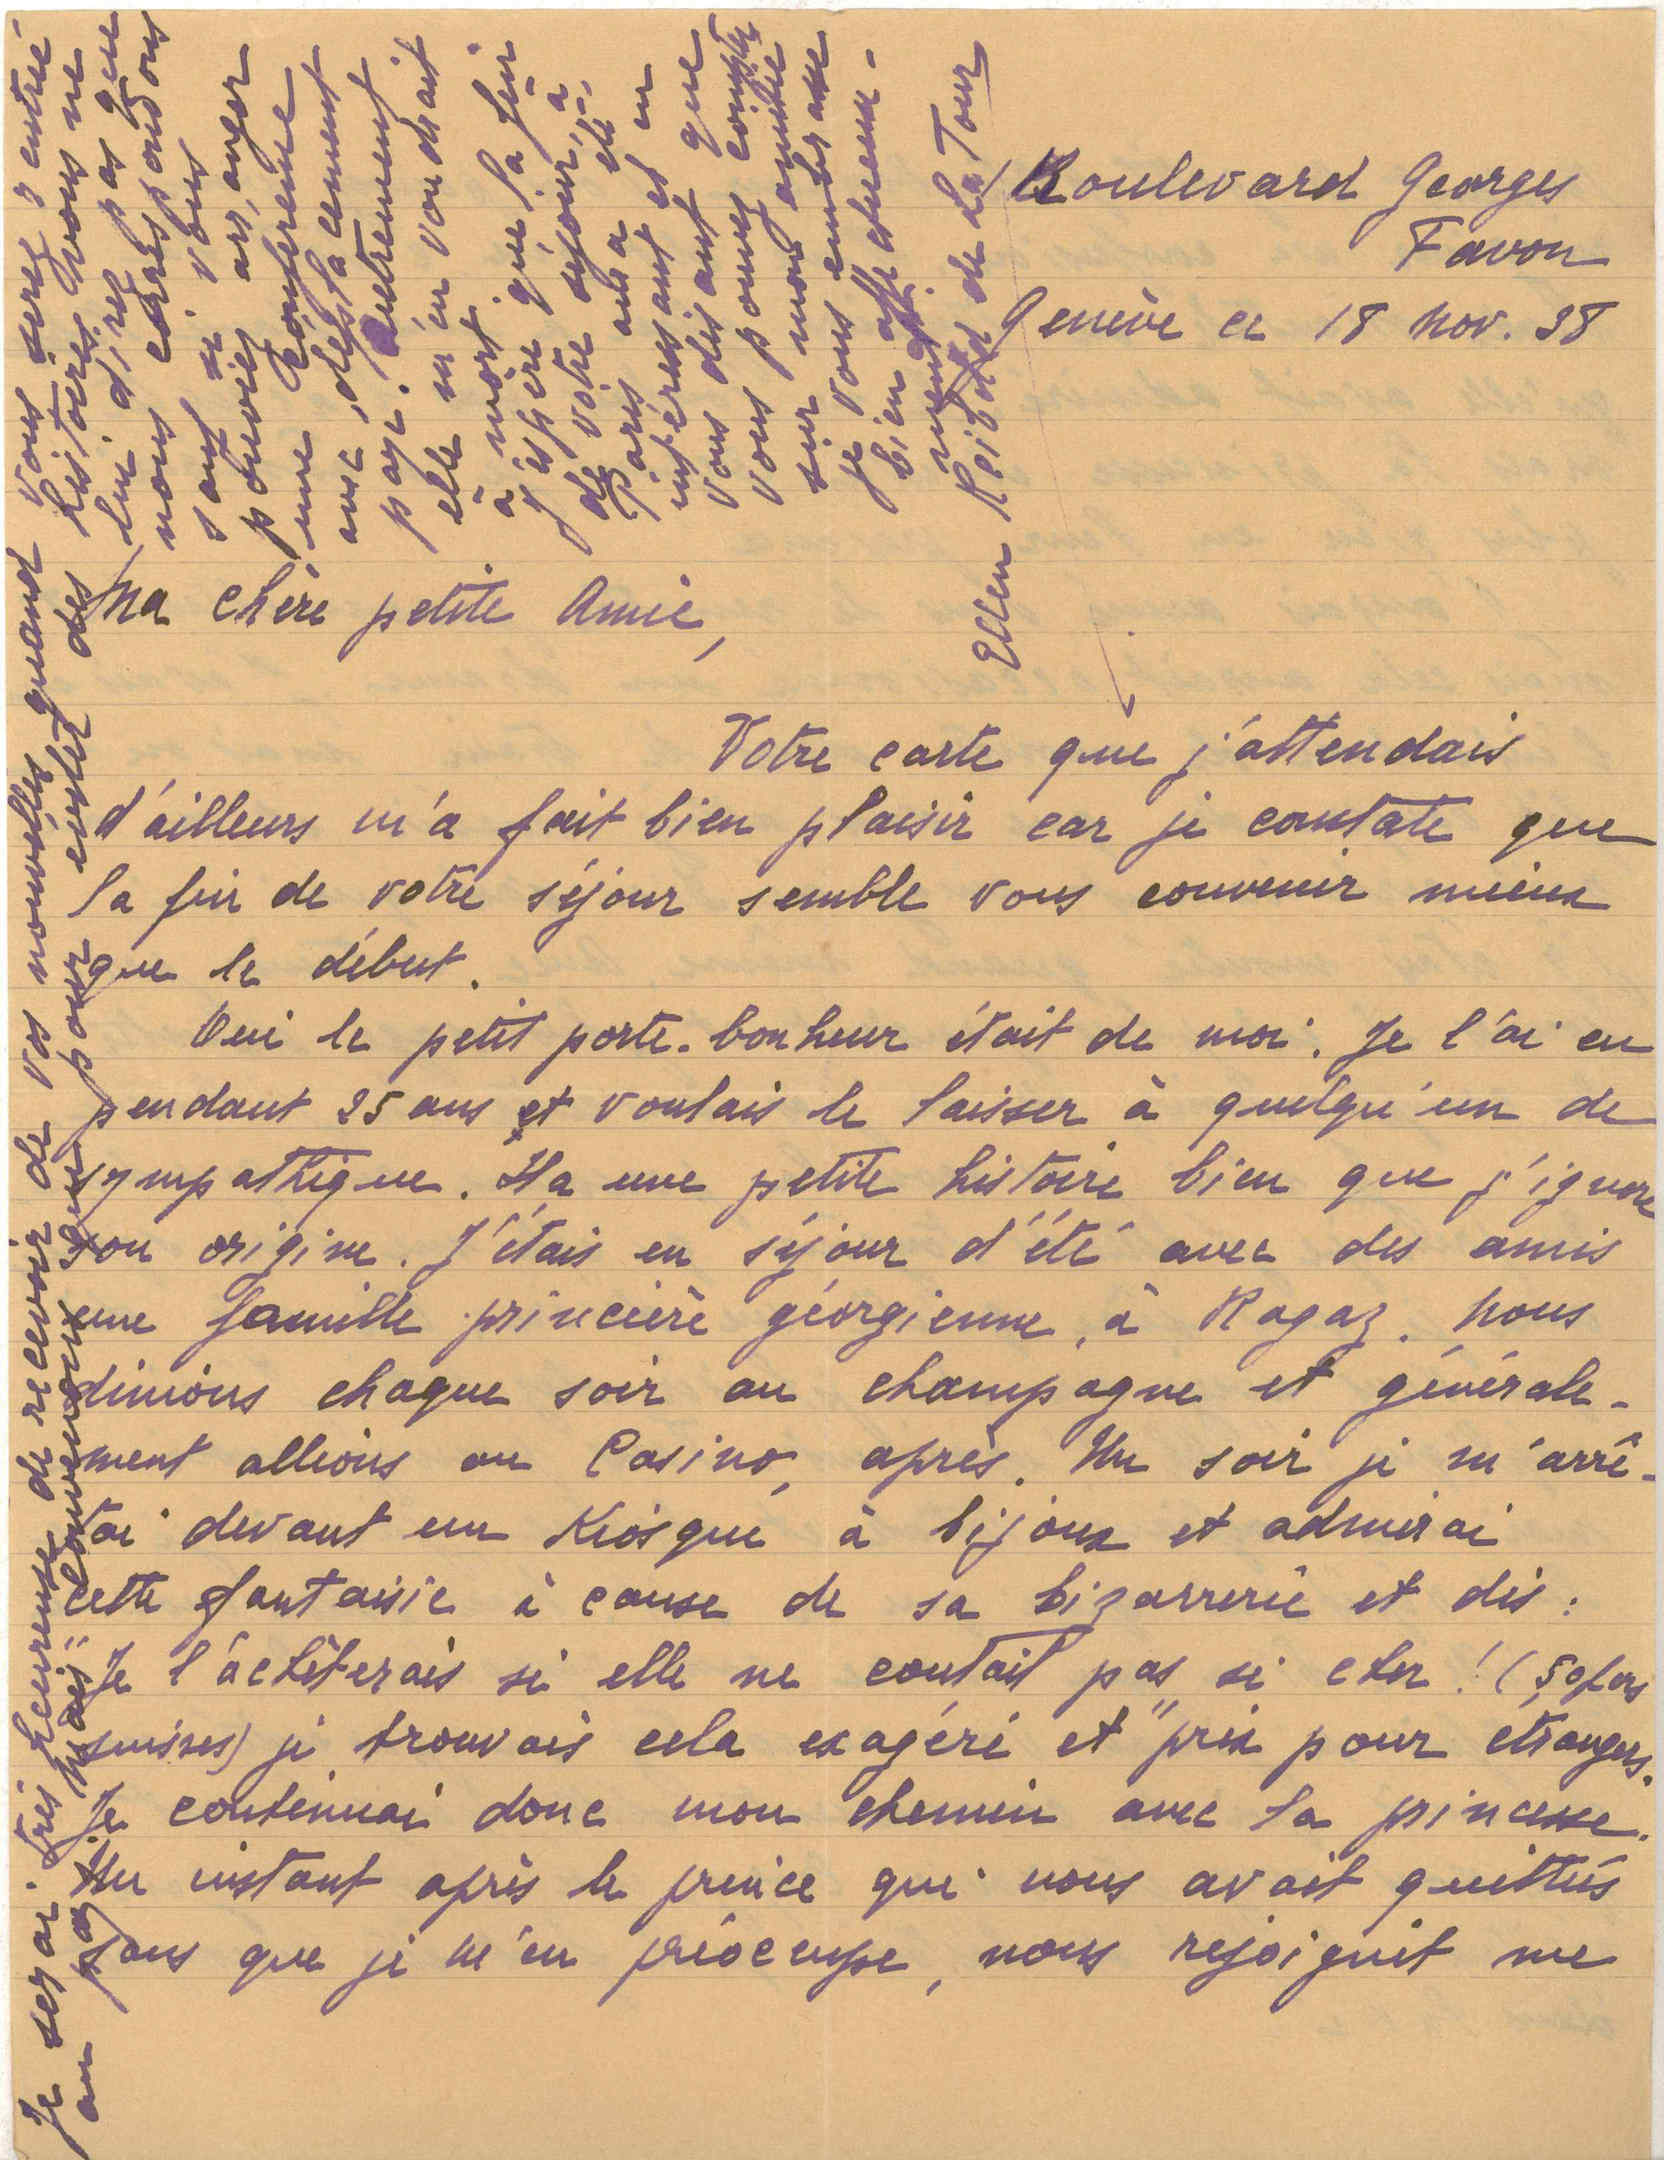 Boulevard Georges
Favon
Genève ce 18 nov. 38
Ma chère petite Amie,
Votre carte que j'attendais
d'ailleurs m'a fait bien plaisir car je constate que
la fin de votre séjour semble vous convenir mieux
que le début.
Oui le petit porte-bonheur était de moi. Je l'ai eu
pendant 25 ans et voulais le laisser à quelqu'un de
sympathique. Il a une petite histoire bien que j'ignore
son origine. J'étais en séjour d'été avec des amis
une famille princière géorgienne, à Ragaz. Nous
dinions chaque soir au champagne et générale-
ment allions au Casino, après. Un soir je m'arrê-
tai devant un Kiosque à bijoux et admirai
cette fantaisie à cause de sa bizarrerie et dis :
Je l'achèterais si elle ne coutait pas si cher ! (50 frs
suisses) je trouvais cela exagéré et "prix pour étrangers.
Je continuai donc mon chemin avec la princesse.
Un instant après le prince qui nous avait quittés
sans que je m'en préoccupe, nous rejoignit me
Je serai très heureuse de recevoir de vos nouvelles quand vous serez rentrée
au pays mais convenons que pour éviter des histoires, nous ne
lui dirons pas que
nous correspondons
sauf si vous
pouviez arranger
une conférence
avec déplacement
payé. Autrement
elle m'en voudrait
à mort.
J'espère que la fin
de votre séjour, à
Paris aura été,
intéressant et en
vous disant que
vous pouvez compter
sur mon amitié
je vous embrasse
bien affectueuse-
ment
Ellen Reibold de La Tour